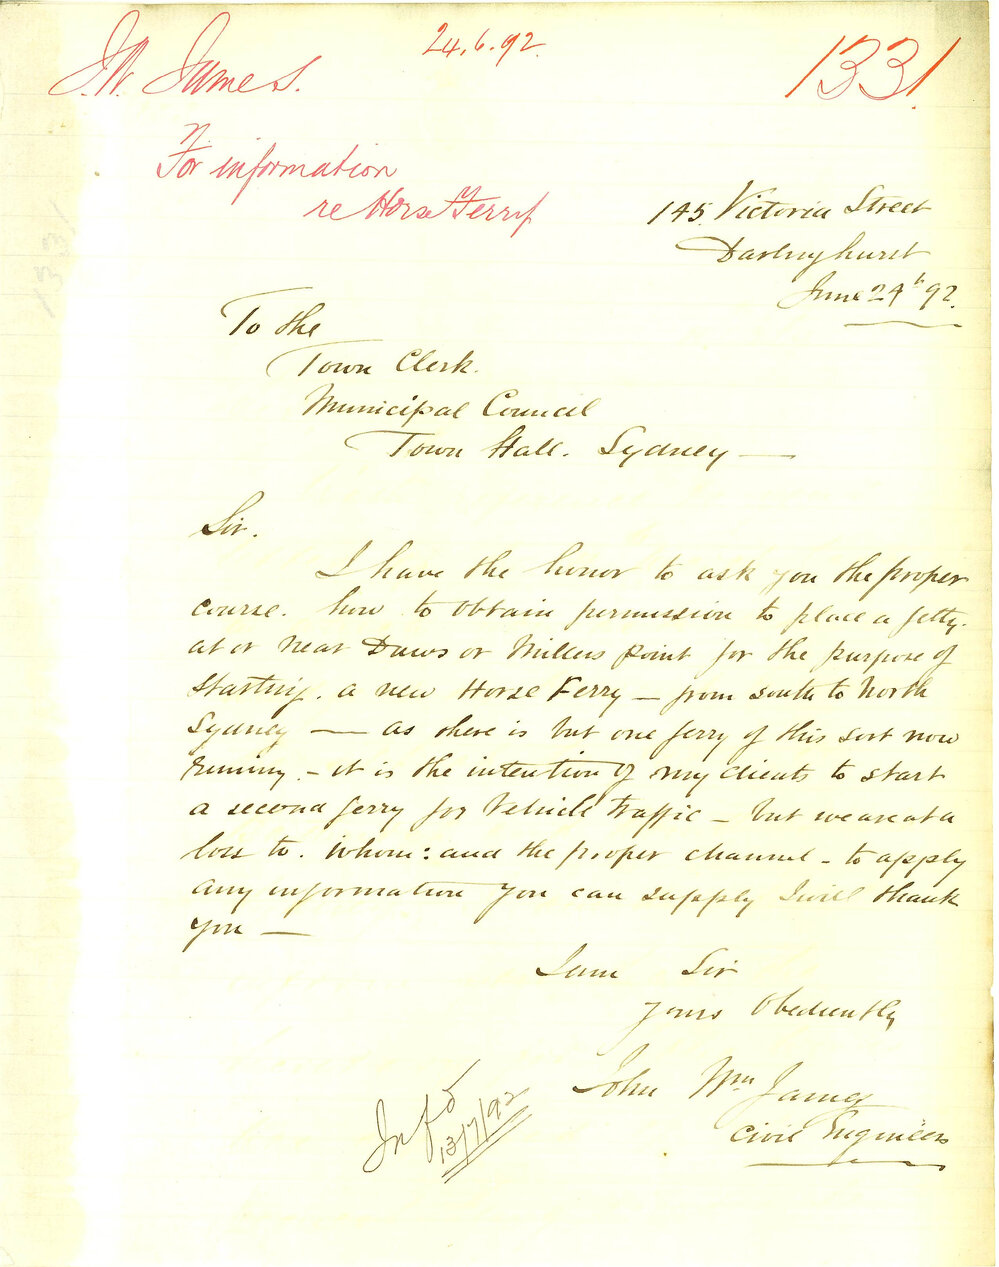 J.W. James.
24.6.92.
1331.
For information
re Horse Ferry
145 Victoria Street
Darlinghurst
June 24th 92.
To the
Town Clerk.
Municipal Council
Town Hall. Sydney —
Sir.
I have the honor to ask you the proper
course. how to obtain permission to place a jetty.
at or near Daws or Millers point for the purpose of
starting. a new Horse Ferry — from south to North
Sydney — as there is but one ferry of this sort now
running. – it is the intention of my clients to start
a second ferry for Vehicle traffic – but we are at a
loss to. whom: and the proper channel – to apply
any information you can supply I will thank
you —
I am Sir
Yours Obediently
John Wm James
Civil Engineers
Infd
13/7/92